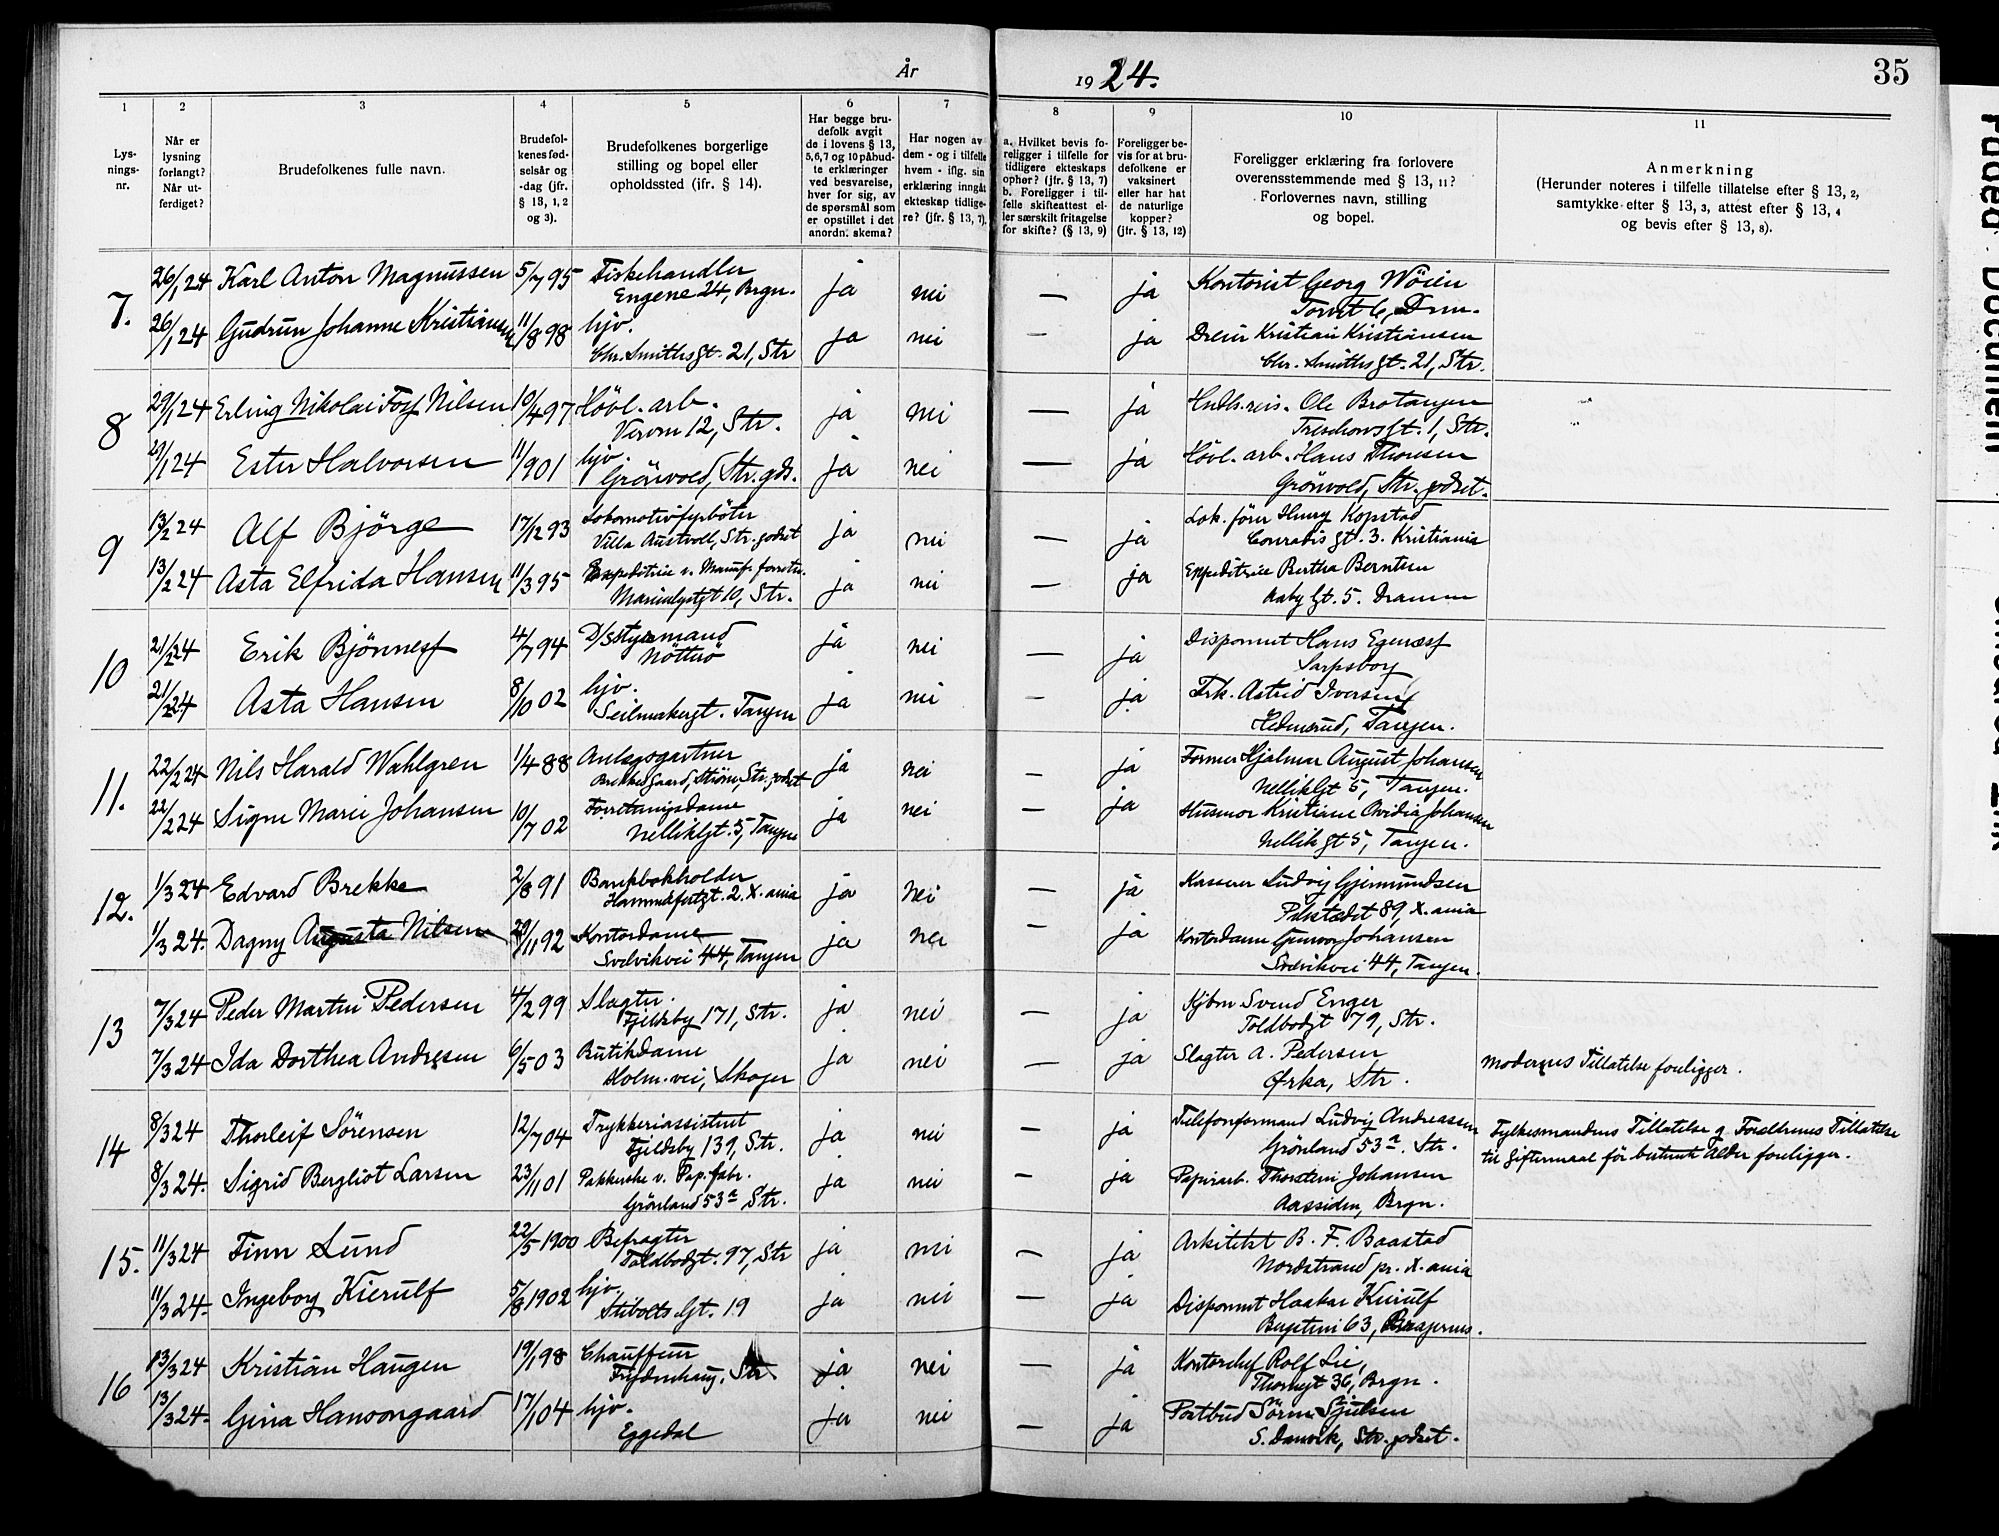 År 1924. 35
1 2 3 4 5 6 7 8 9 10 11
Lysningsnr.
Når er lysning forlangt? Når utferdiget?
Brudefolkenes fulle navn.
Brudefolkenes fødselsår og -dag (jfr. § 13, 1, 2 og 3).
Brudefolkenes borgerlige stilling og bopel eller opholdssted (jfr. § 14).
Har begge brudefolk avgit de i lovens § 13, 5, 6, 7 og 10 påbudte erklæringer ved besvarelse, hver for sig, av de spørsmål som er opstillet i det anordn. skema?
Har nogen av dem - og i tilfelle hvem - iflg. sin erklæring inngåt ekteskap tidligere? (jfr. § 13, 7).
a. Hvilket bevis foreligger i tilfelle for tidligere ekteskaps ophør? (jfr. § 13, 7) b. Foreligger i tilfelle skifteattest eller særskilt fritagelse for skifte? (§ 13, 9)
Foreligger bevis for at brudefolkene er vaksinert eller har hat de naturlige kopper? (jfr. § 13, 12)
Foreligger erklæring fra forlovere overensstemmende med § 13, 11? Forlovernes navn, stilling og bopel.
Anmerkning (Herunder noteres i tilfelle tillatelse efter § 13, 2, samtykke efter § 13, 3, attest efter § 13, 4 og bevis efter § 13, 8).
7. 26/1 24 Karl Anton Magnussen 5/7 95 Fiskehandler ja nei — ja Kontorist Georg Wöien
Engene 24, Brgn. Tomt 6, Drm.
26/1 24 Gudrun Johanne Kristiansen 11/8 98 hjv. ja nei — ja Dreier Kristian Kristiansen
Chr. Smithsgt. 21, Str Chr. Smithsgt. 21, Str.
8 29/1 24 Erling Nikolai Foss Nilsen 10/4 97 Hövl. arb. ja nei — ja Hndls.reis. Ole Brotangen
12, Str. Treschowsgt. 1, Str.
24 Ester Halvorsen 11/9 01 hjv. ja nei — ja Hövl. arb. Hans Thomsen
Grönvold, Str. gds. Grönvold, Str. godset.
9 13/2 24 Alf Björge 17/12 93 Lokomotivfyrböter ja nei — ja Lok. förer Henry Kopstad
Villa Austvoll, Str. godset Conradis gt. 3. Kristiania
13/2 24 Asta Elfrida Hansen 11/3 95 Expeditrice v. Manuf. forretn. ja nei — ja Expeditrice Bertha Berntsen
Marienlystgt 10, Str. Aaby gt. 5. Drammen
10 21/2 24 Erik Bjönness 4/7 94 D/S styrmand ja nei — ja Disponent Hans Egenæss
Nötterö Sarpsborg
21/2 24 Asta Hansen 8/10 02 hjv. ja nei — ja Frk. Astrid Iversen
Seilmakergt. Tangen Hedensrud, Tangen.
11. 22/2 24 Nils Harald Wahlgren 1/4 88 Anlægsgartner ja nei — ja Former Hjalmar August Johansen
Brekke Gaard, Ström, Str. godset Nellikgt 5, Tangen.
22/2 24 Signe Marie Johansen 10/7 02 Forretningsdame ja nei — ja Husmor Kristiane Ovidia Johansen
Nellikgt. 5, Tangen Nellik gt 5, Tangen.
12. 1/3 24 Edvard Brekke 2/8 91 Bankbokholder ja nei — ja Kasserer Ludvig Gjermundsen
Hammerfestgt. 2. X.ania Pilestrædet 89, X.ania
1/3 24. Dagny Augusta Nilsen /11 92 Kontordame ja nei — ja Kontordame Gunvor Johansen
Svelvikvei 44, Tangen Svelvikvei 44, Tangen.
13 7/3 24 Peder Martin Pedersen 4/2 99 Slagter. ja nei — ja Kjbm Svend Enger
Fjeldsby 171, Str. Toldbodgt 79, Str.
7/3 24 Ida Dorthea Andresen 6/5 03 Butikdame ja nei — ja Slagter A. Pedersen Moderens Tillatelse foreligger.
Holm. vei, Skoger Ørka, Str.
14 8/3 24 Thorleif Sörensen 12/7 04 Trykkeriassistent ja nei — ja Telefonformand Ludvig Andreassen Fylkesmandens Tillatelse g Forældrenes Tillatelse
Fjeldsby 139, Str. Grönland 53a. Str. til Giftermaal för bestemt Alder foreligger.
8/3 24. Sigrid Bergliot Larsen 23/1 01 Pakkerske v. Pap. fabr. ja nei — ja Papirarb. Thorstein Johansen
Grönland 53a Str. Aassiden, Brgn.
15. 11/3 24 Finn Lund 22/5 1900 Befragter ja nei — ja Arkitekt B. F. Baastad
Toldbodgt. 97, Str Nordstrand pr. X.ania
11/3 24. Ingeborg Kierulf 5/8 1902 hjv. ja nei — ja Disponent Haakon Kierulf
Stibolts Gt. 19 63, Bragernes.
16 13/3 24 Kristian Haugen 19/1 98 Chauffeur ja nei — ja Kontorchef Rolf Lie,
Frydenhaug, Str Thornegt 36, Brgn.
13/3 24. Gina Hansongaard 17/1 04 hjv. ja nei — ja Postbud Sörine Sjulsen
Eggedal S. Danvik, Str. godset.